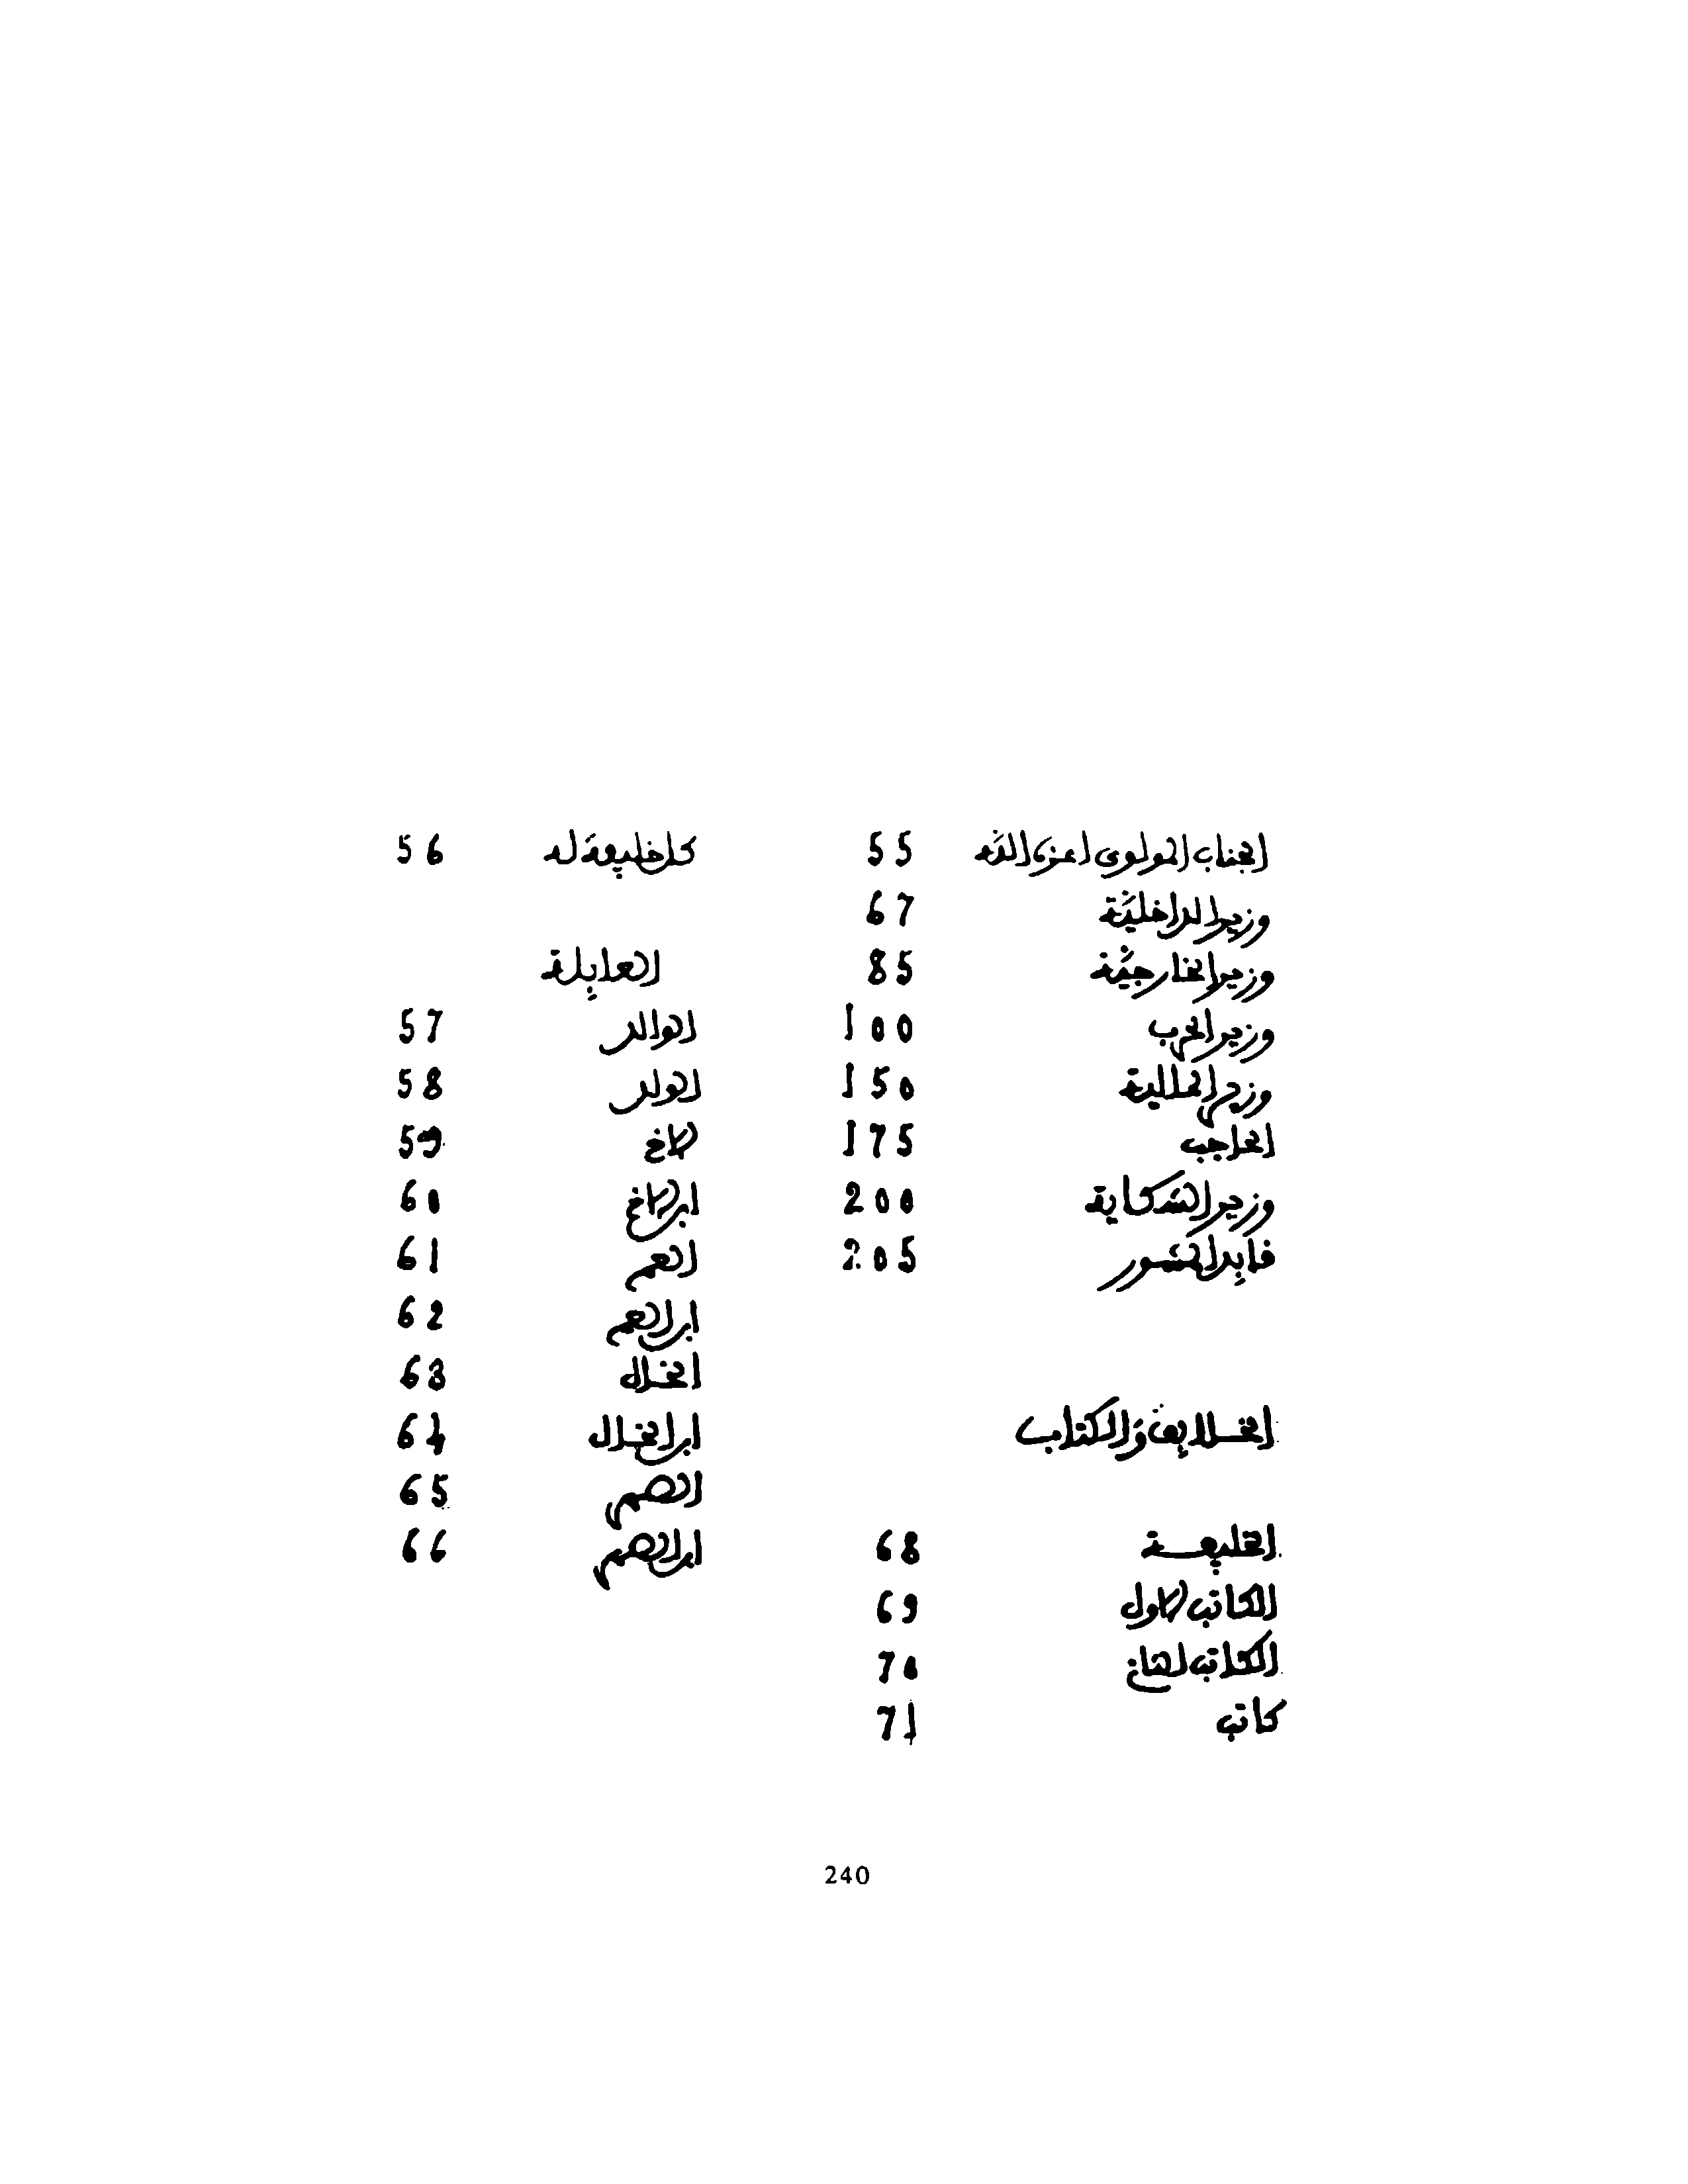 الجناب المولوى اعزه الله 55
وزير الداخلية 67
وزير الخارجية 85
وزير الحرب 100
وزير المالية 150
الحاجب 175
وزير الشكاية 200
فايد المشور 205
الخلايف والكتاب
الخليفة 68
الكاتب الاول 69
الكاتب الثانى 70
كاتب 71
كل خليفة له 56
العايلة
الوالد 57
الولد 58
الاخ 59
ابن الاخ 60
العم 61
ابن العم 62
الخال 63
ابن الخال 64
الصهر 65
ابن الصهر 66
240